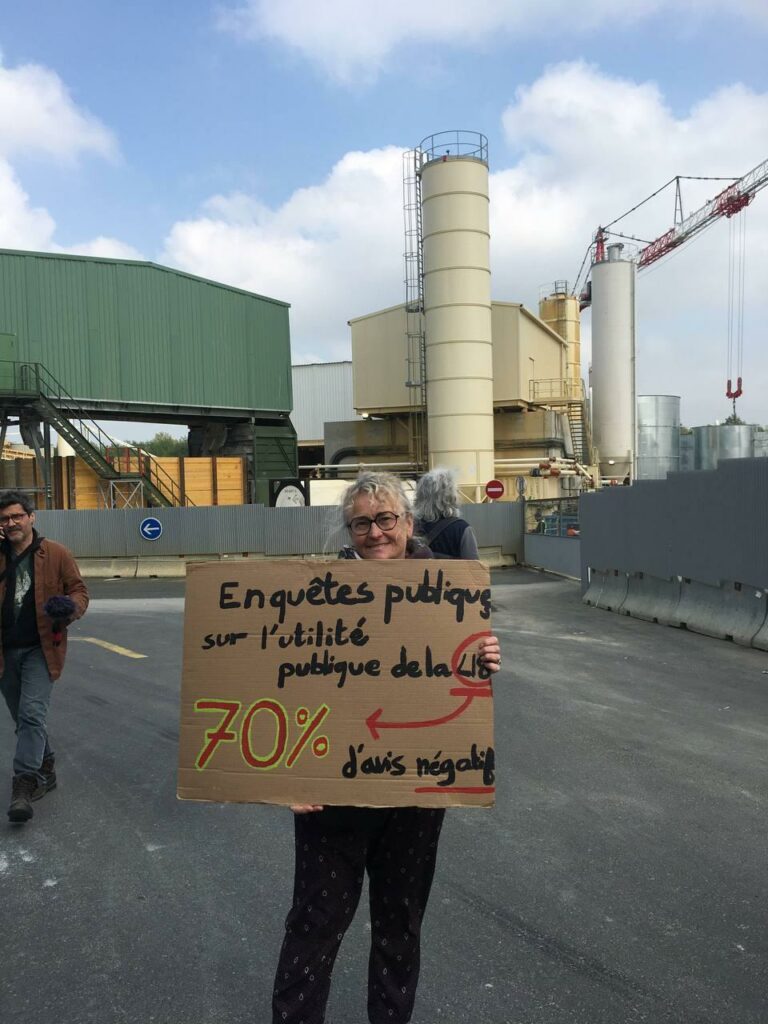 Enquêtes publique
sur l'utilité
publique de la L18
70%
d'avis négatif